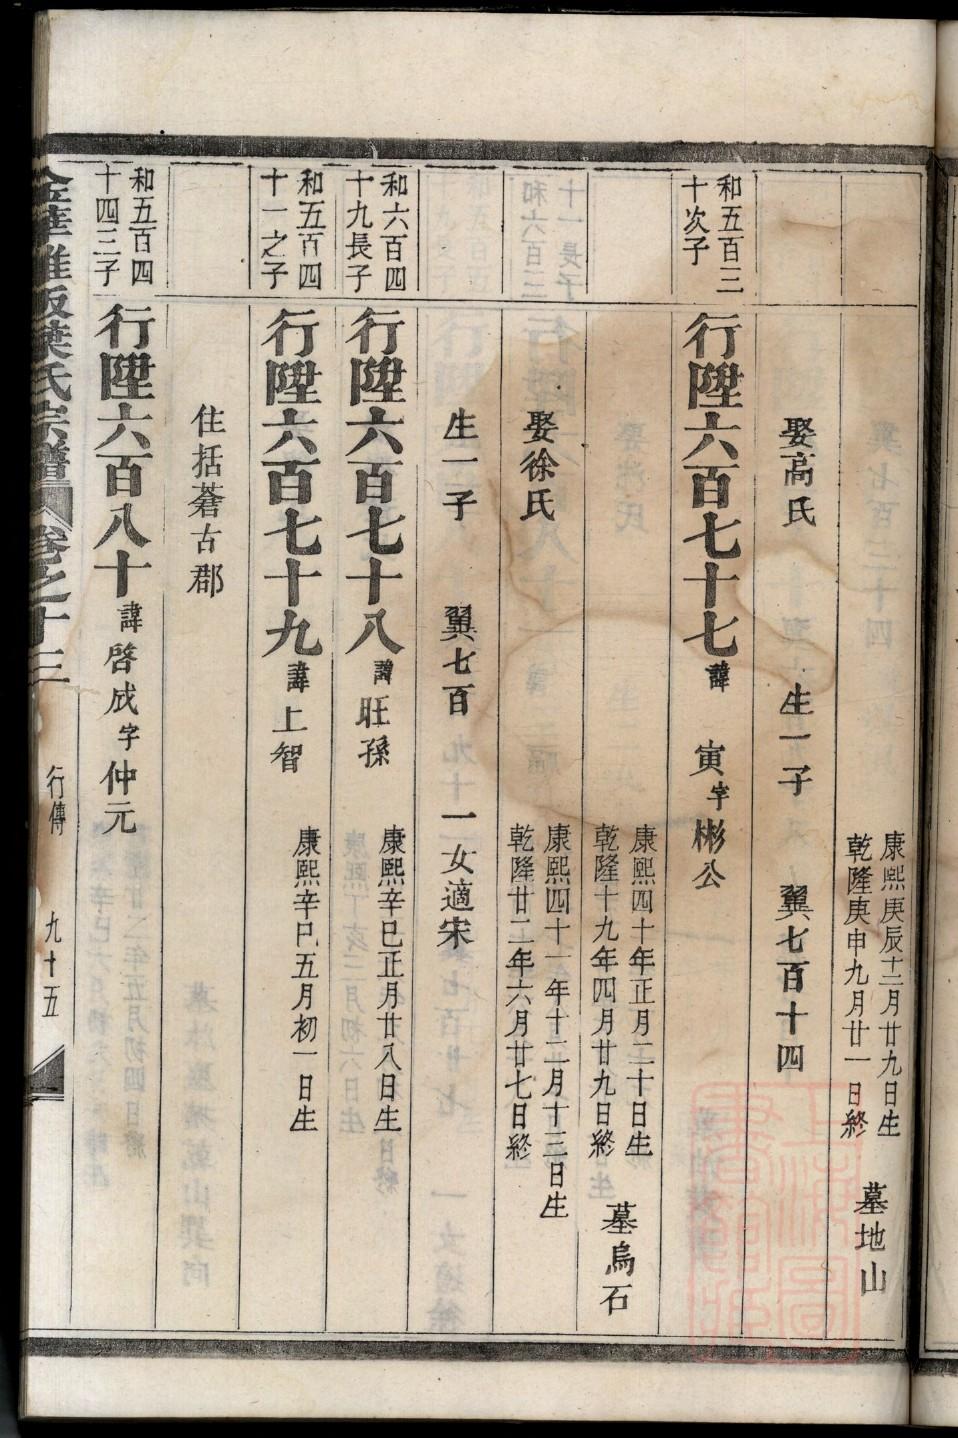 康熙庚辰十二月廿九日生
乾隆庚申九月廿一日終
墓地山
娶高氏 生一子 翼七百十四
和五百三
十次子
行陞六百七十七 諱寅 字彬公
康熙四十年正月二十日生
乾隆十九年四月廿九日終
墓烏石
娶徐氏
康熙四十一年十二月十三日生
乾隆廿二年六月廿七日終
生一子 翼七百九十一 一女適宋
和六百四
十九長子
行陞六百七十八 諱旺孫
康熙辛巳正月廿八日生
和五百四
十一之子
行陞六百七十九 諱上智
康熙辛巳五月初一日生
住括蒼古郡
和五百四
十四三子
行陞六百八十 諱啓成 字仲元
葉氏宗譜 卷之十三 行傳 九十五